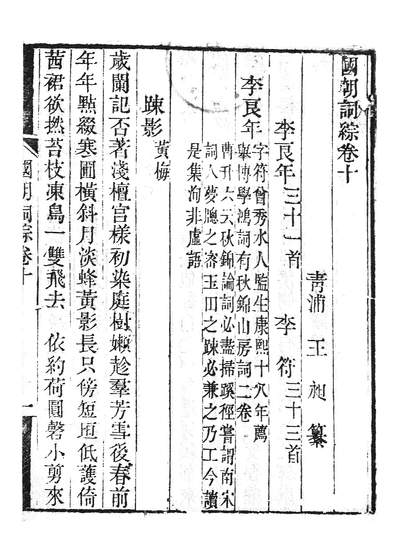 國朝詞綜卷十
青浦 王昶 纂
李良年三十一首 李符三十三首
李良年
字符曾秀水人監生康熙十八年薦
舉博學鴻詞有秋錦山房詞二卷
曹升六云秋錦論詞必盡掃蹊徑嘗謂南宋
詞人夢牕之密玉田之疎必兼之乃工今讀
是集洵非虛語
疎影 黃梅
歲闌記否著淺檀宮樣初染庭樹嬾趁羣芳雪後春前
年年點綴寒圃橫斜月淡蜂黃影長只傍短垣低護倚
茜裙欲撚苔枝凍鳥一雙飛去 依約荷圓磬小剪來
國朝詞綜卷十 一